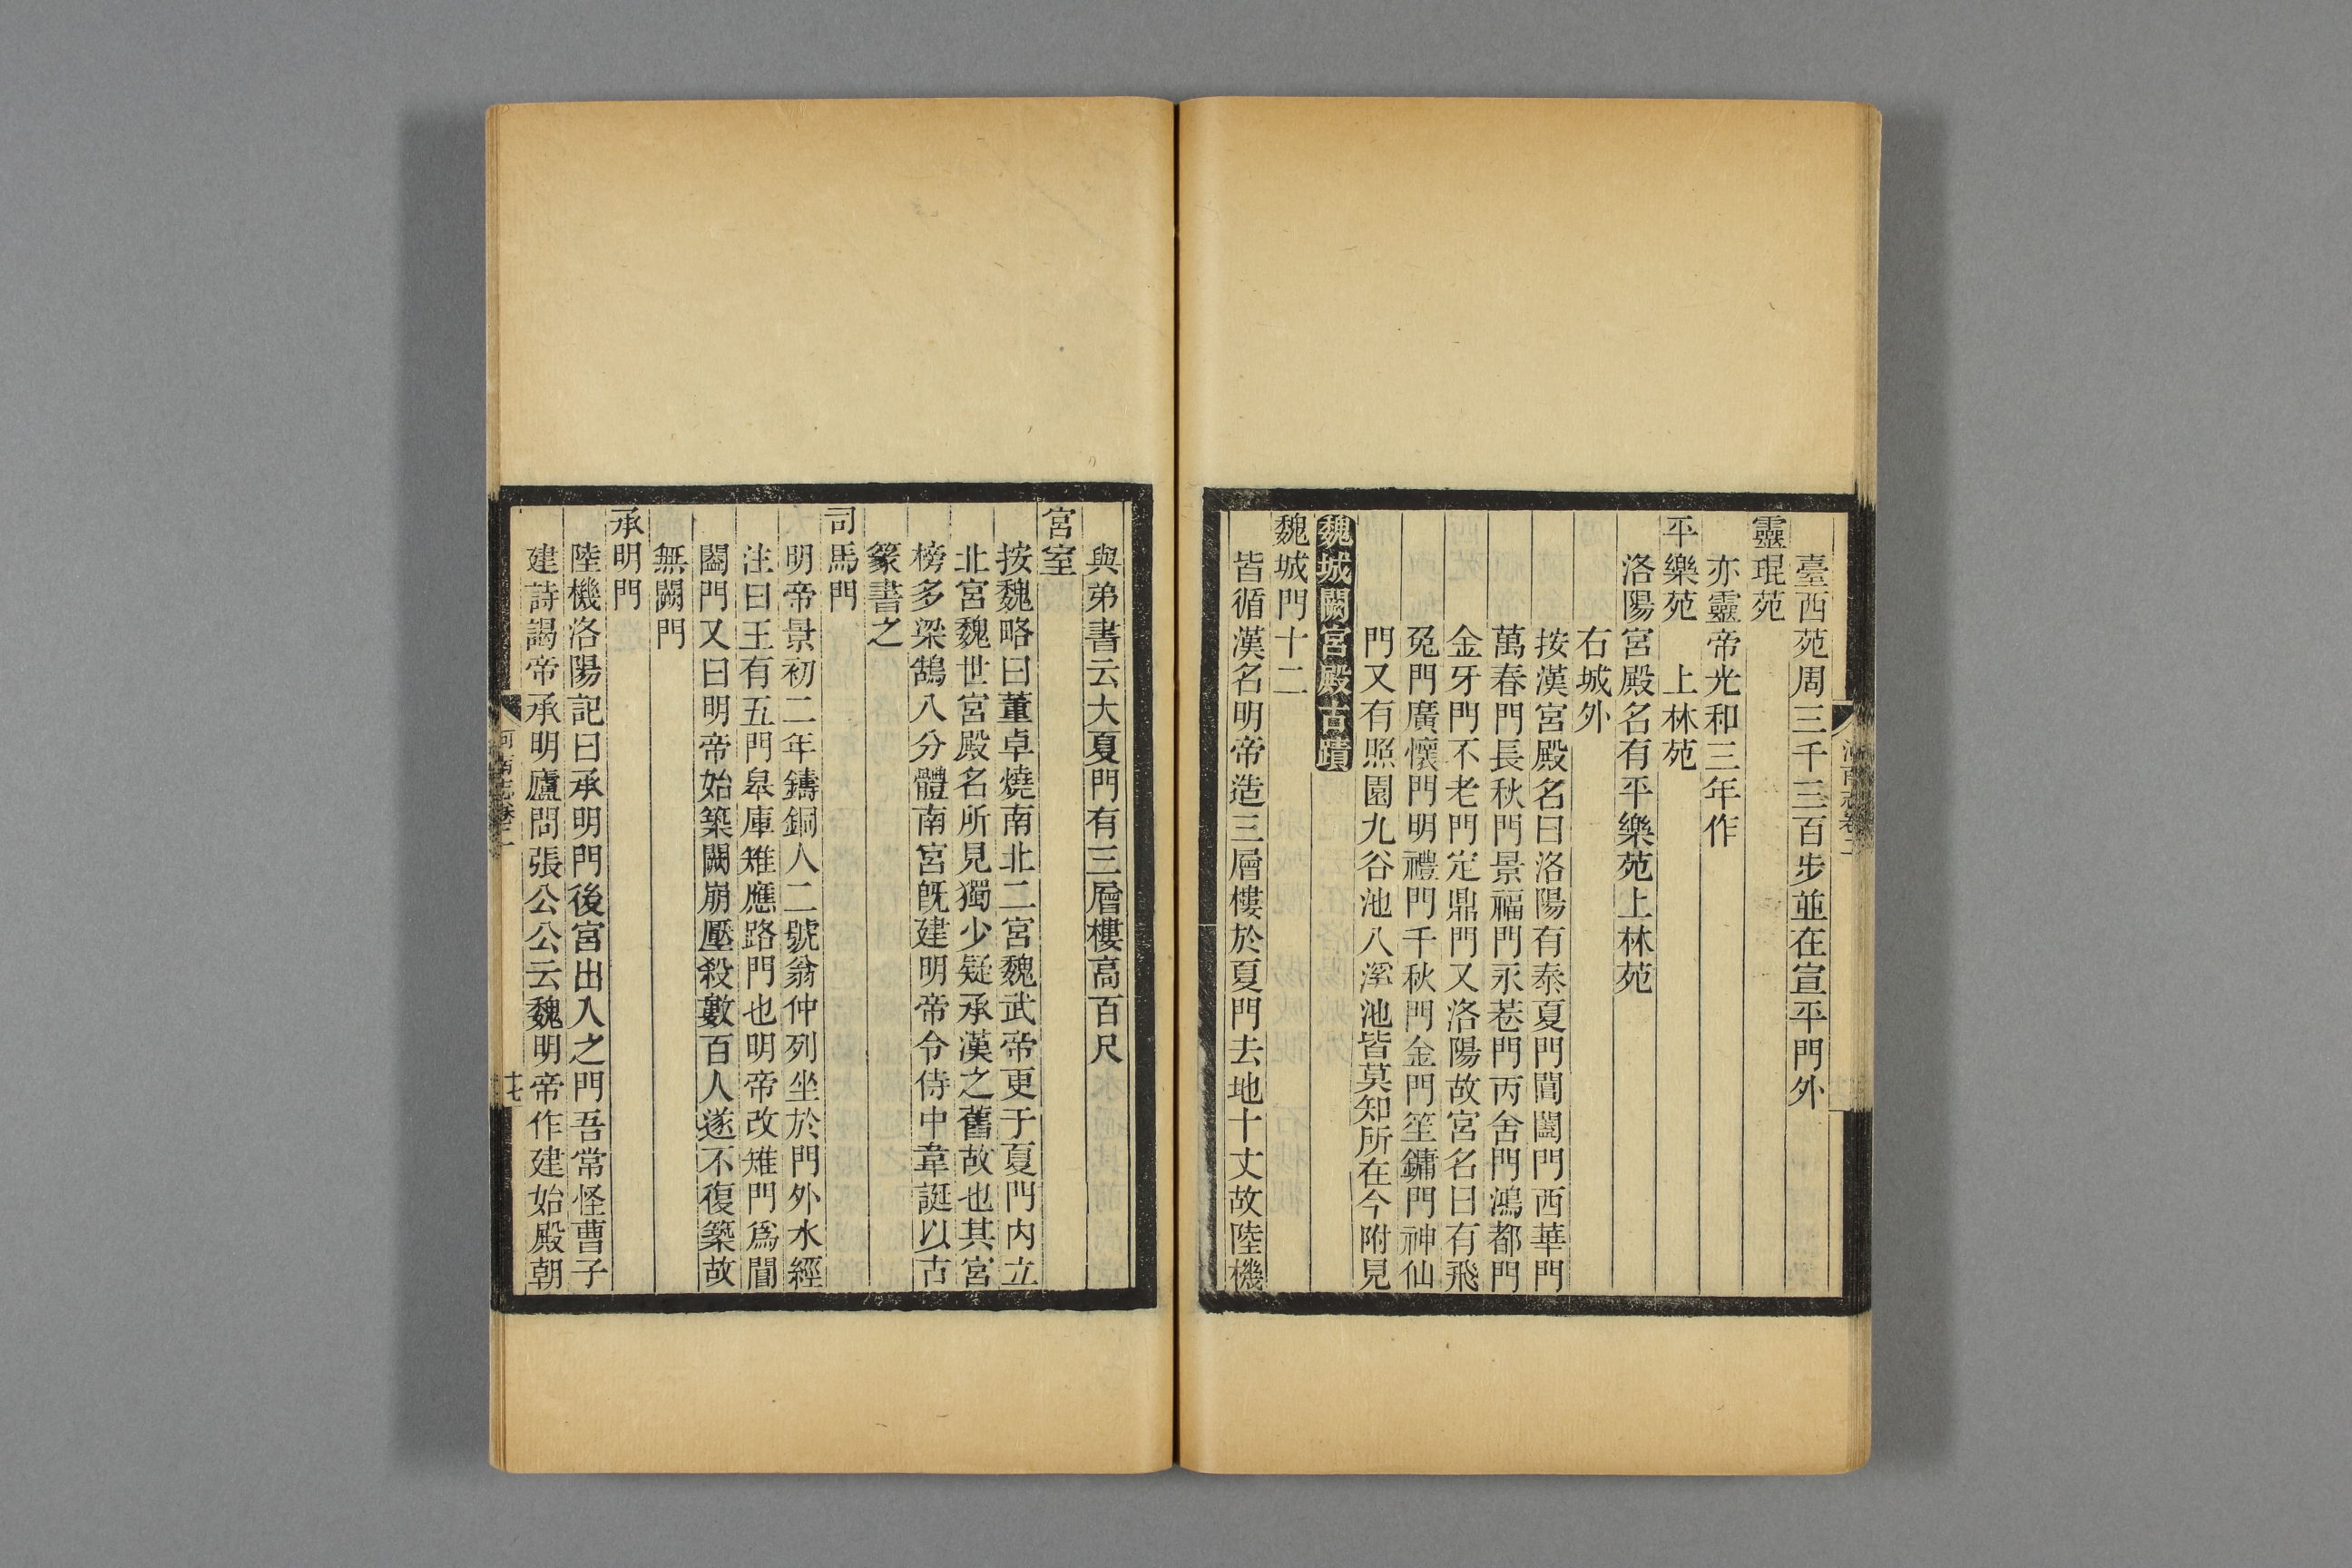 臺西苑周三千三百步並在宣平門外
靈琨苑
亦靈帝光和三年作
平樂苑　上林苑
洛陽宮殿名有平樂苑上林苑
右城外
按漢宮殿名曰洛陽有泰夏門閶闔門西華門
萬春門長秋門景福門永巷門丙舍門鴻都門
金牙門不老門定鼎門又洛陽故宮名曰有飛
兔門廣懷門明禮門千秋門金門笙鏞門神仙
門又有照園九谷池八溪池皆莫知所在今附見
魏城闕宮殿古蹟
魏城門十二
皆循漢名明帝造三層樓於夏門去地十丈故陸機
與弟書云大夏門有三層樓高百尺
宮室
按魏略曰董卓燒南北二宮魏武帝更于夏門內立
北宮魏世宮殿名所見獨少疑承漢之舊故也其宮
榜多梁鵠八分體南宮既建明帝令侍中韋誕以古
篆書之
司馬門
明帝景初二年鑄銅人二號翁仲列坐於門外水經
注曰王有五門皋庫雉應路門也明帝改雉門爲閶
闔門又曰明帝始築闕崩壓殺數百人遂不復築故
無闕門
承明門
陸機洛陽記曰承明門後宮出入之門吾常怪曹子
建詩謁帝承明廬問張公公云魏明帝作建始殿朝
河南志卷二
十七